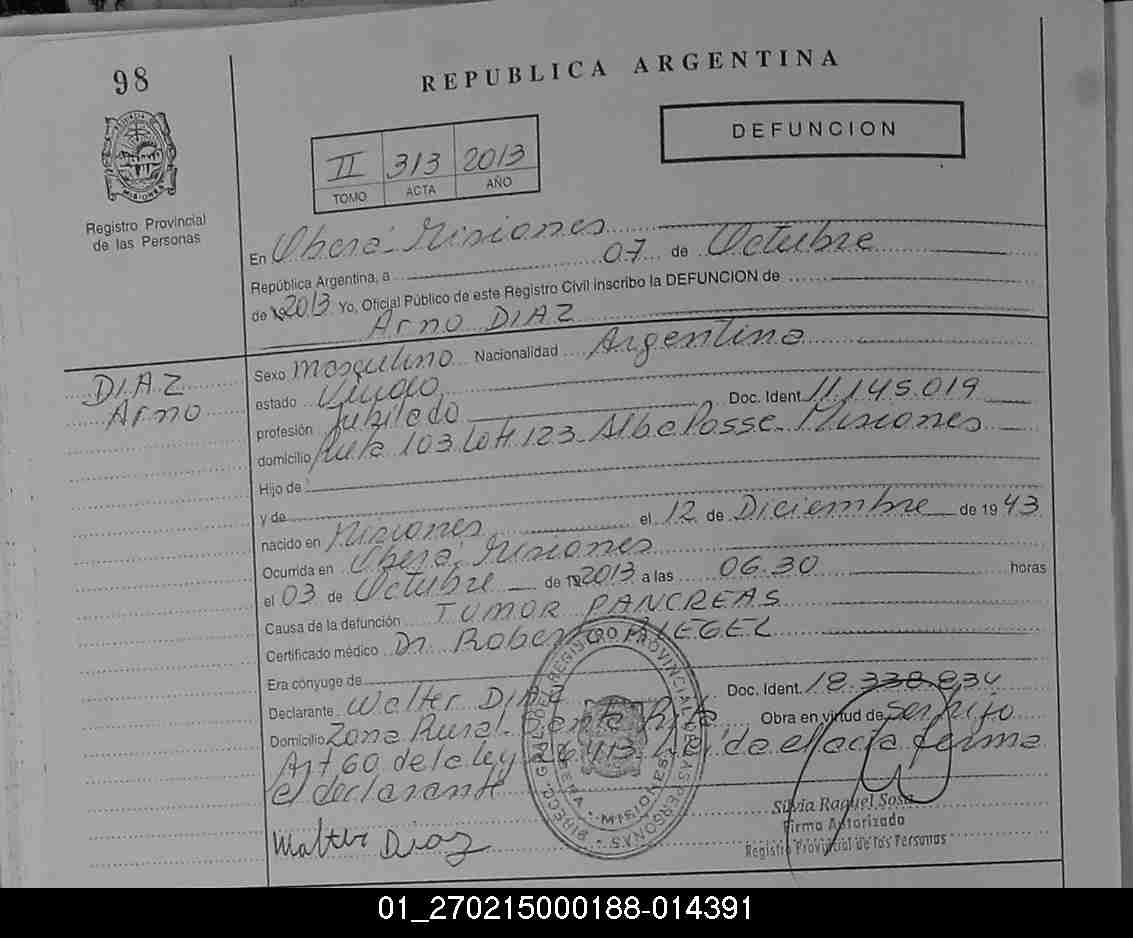 98
REPUBLICA ARGENTINA
DEFUNCION
II 313 2013
TOMO ACTA AÑO
PROVINCIA DE MISIONES
Registro Provincial
de las Personas
En Oberá-Misiones
República Argentina, a 07 de Octubre
de 2013 Yo, Oficial Público de este Registro Civil inscribo la DEFUNCION de
Arno DIAZ
DIAZ
Arno
Sexo masculino Nacionalidad Argentina
estado Viudo
profesión Jubilado Doc. Ident. 11.145.019
domicilio Ruta 103 Lott 123 Alba Posse-Misiones
Hijo de
y de
nacido en Misiones el 12 de Diciembre de 1943
Ocurrida en Oberá, Misiones
el 03 de Octubre de 2013 a las 06.30 horas
Causa de la defunción TUMOR PANCREAS
Certificado médico Dr. Roberto RIEGEL
Era cónyuge de
Declarante Walter DIAZ Doc. Ident. 18.338.834
Domicilio Zona Rural-Santa Rita Obra en virtud de ser hijo
Art 60 de la ley 26.413 Leída el acta firma
el declarante
Walter Diaz
Silvia Raquel Sosa
Firma Autorizada
Registro Provincial de las Personas
01_270215000188-014391